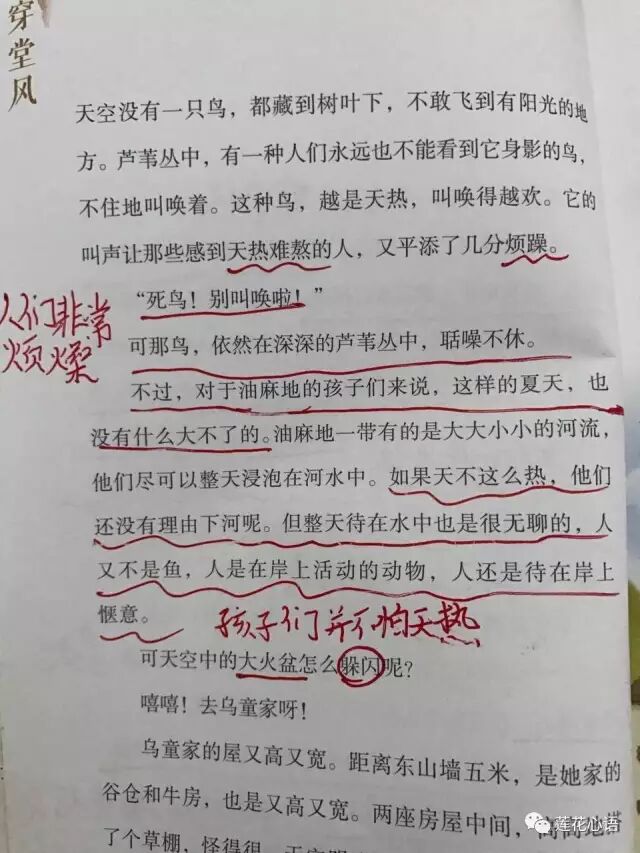 穿堂风
天空没有一只鸟，都藏到树叶下，不敢飞到有阳光的地
方。芦苇丛中，有一种人们永远也不能看到它身影的鸟，
不住地叫唤着。这种鸟，越是天热，叫唤得越欢。它的
叫声让那些感到天热难熬的人，又平添了几分烦躁。
“死鸟！别叫唤啦！”
人们非常
烦燥
可那鸟，依然在深深的芦苇丛中，聒噪不休。
不过，对于油麻地的孩子们来说，这样的夏天，也
没有什么大不了的。油麻地一带有的是大大小小的河流，
他们尽可以整天浸泡在河水中。如果天不这么热，他们
还没有理由下河呢。但整天待在水中也是很无聊的，人
又不是鱼，人是在岸上活动的动物，人还是待在岸上
惬意。
孩子们并不怕天热
可天空中的大火盆怎么躲闪呢？
嘻嘻！去乌童家呀！
乌童家的屋又高又宽。距离东山墙五米，是她家的
谷仓和牛房，也是又高又宽。两座房屋中间，
了个草棚，怪得很，
莲花心语